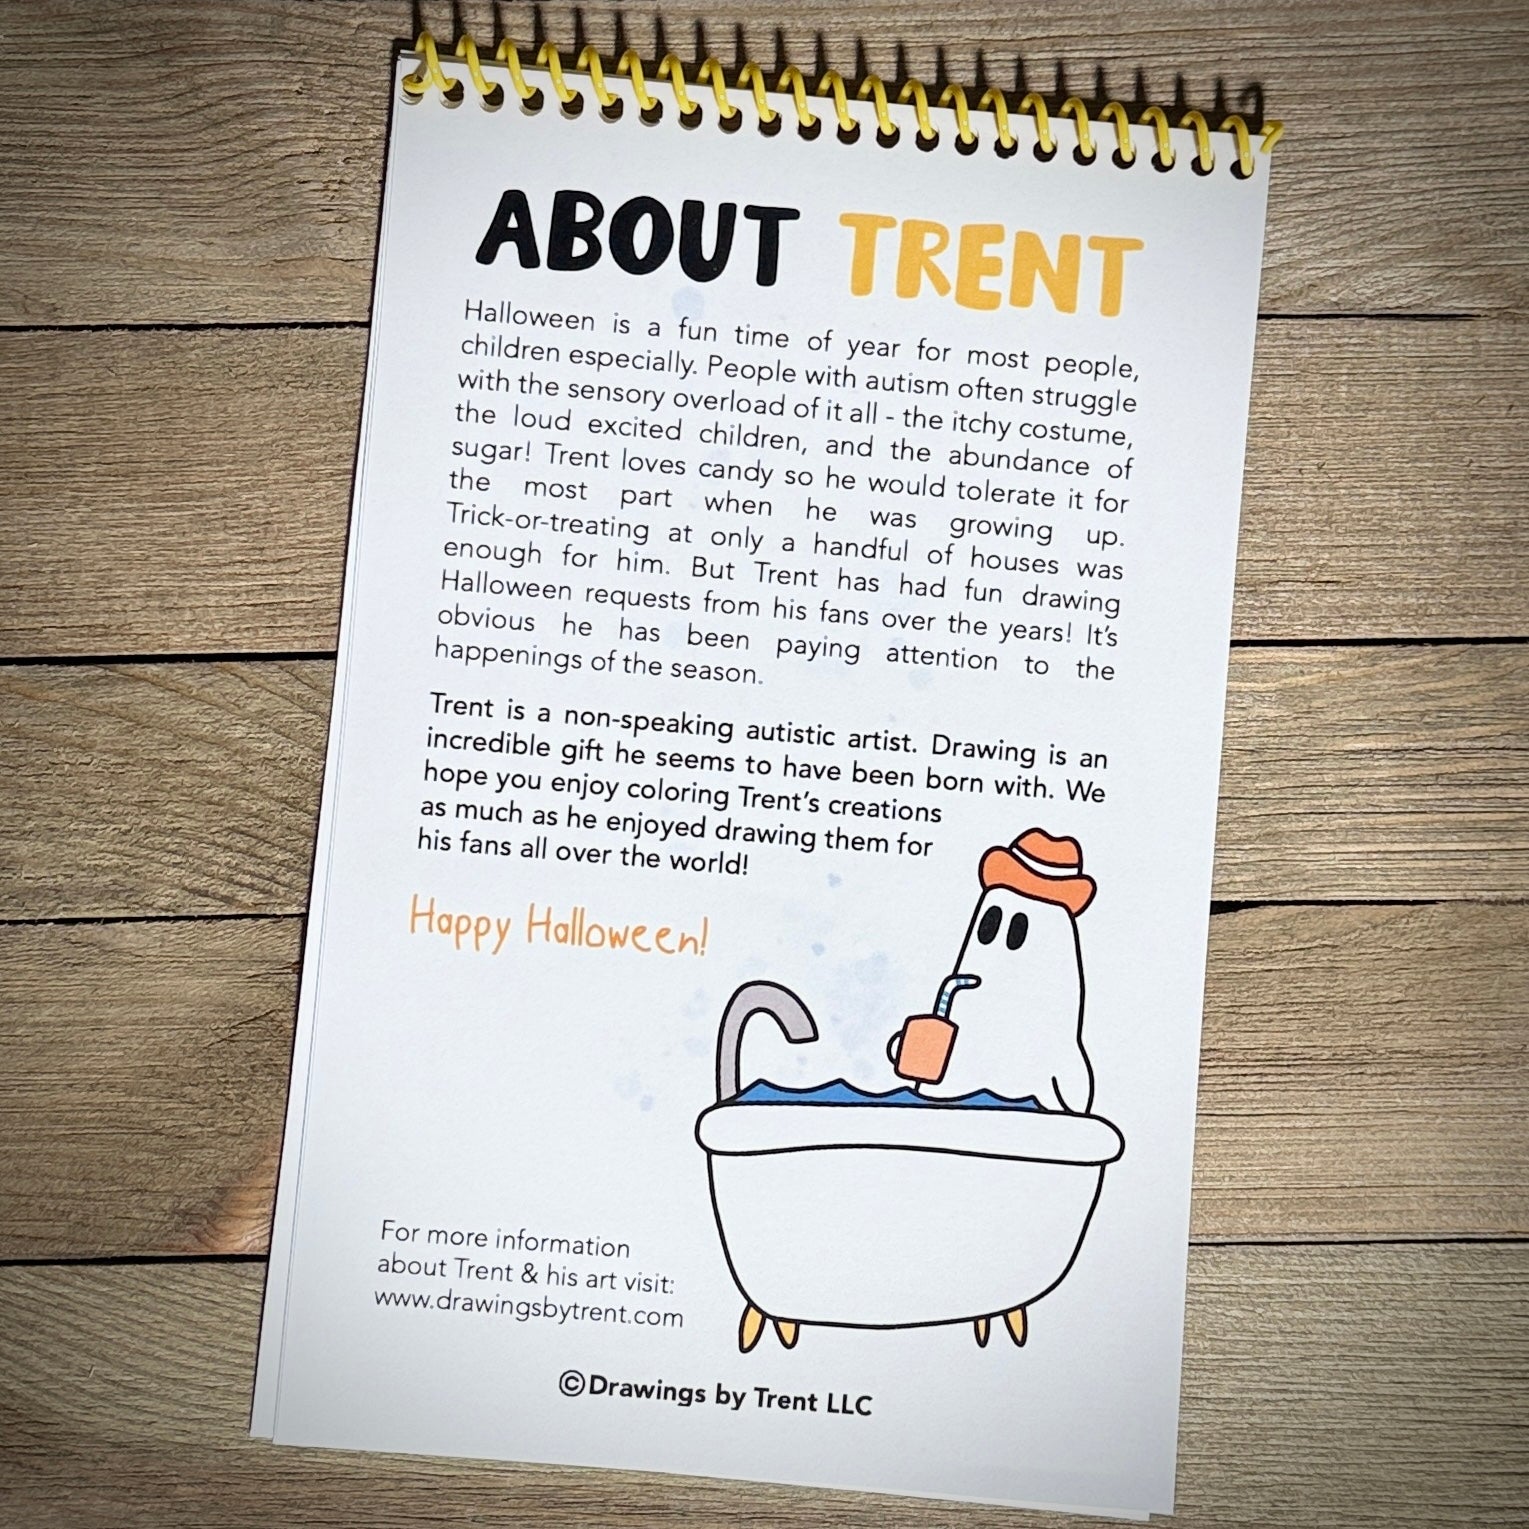 ABOUT TRENT
Halloween is a fun time of year for most people,
children especially. People with autism often struggle
with the sensory overload of it all - the itchy costume,
the loud excited children, and the abundance of
sugar! Trent loves candy so he would tolerate it for
the most part when he was growing up.
Trick-or-treating at only a handful of houses was
enough for him. But Trent has had fun drawing
Halloween requests from his fans over the years! It's
obvious he has been paying attention to the
happenings of the season.
Trent is a non-speaking autistic artist. Drawing is an
incredible gift he seems to have been born with. We
hope you enjoy coloring Trent's creations
as much as he enjoyed drawing them for
his fans all over the world!
Happy Halloween!
For more information
about Trent & his art visit:
www.drawingsbytrent.com
©Drawings by Trent LLC